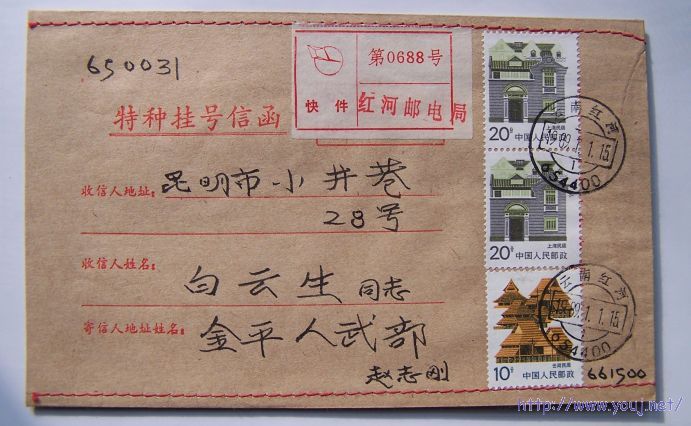 650031
第0688号
快件
红河邮电局
特种挂号信函
收信人地址:
昆明市小井巷
28号
收信人姓名:
白云生同志
寄信人地址姓名:
金平人武部
赵志刚
661500
上海民居
20分
中国人民邮政
上海民居
20分
中国人民邮政
云南民居
10分
中国人民邮政
云南红河
654400
云南红河
654400
http://www.youj.net/